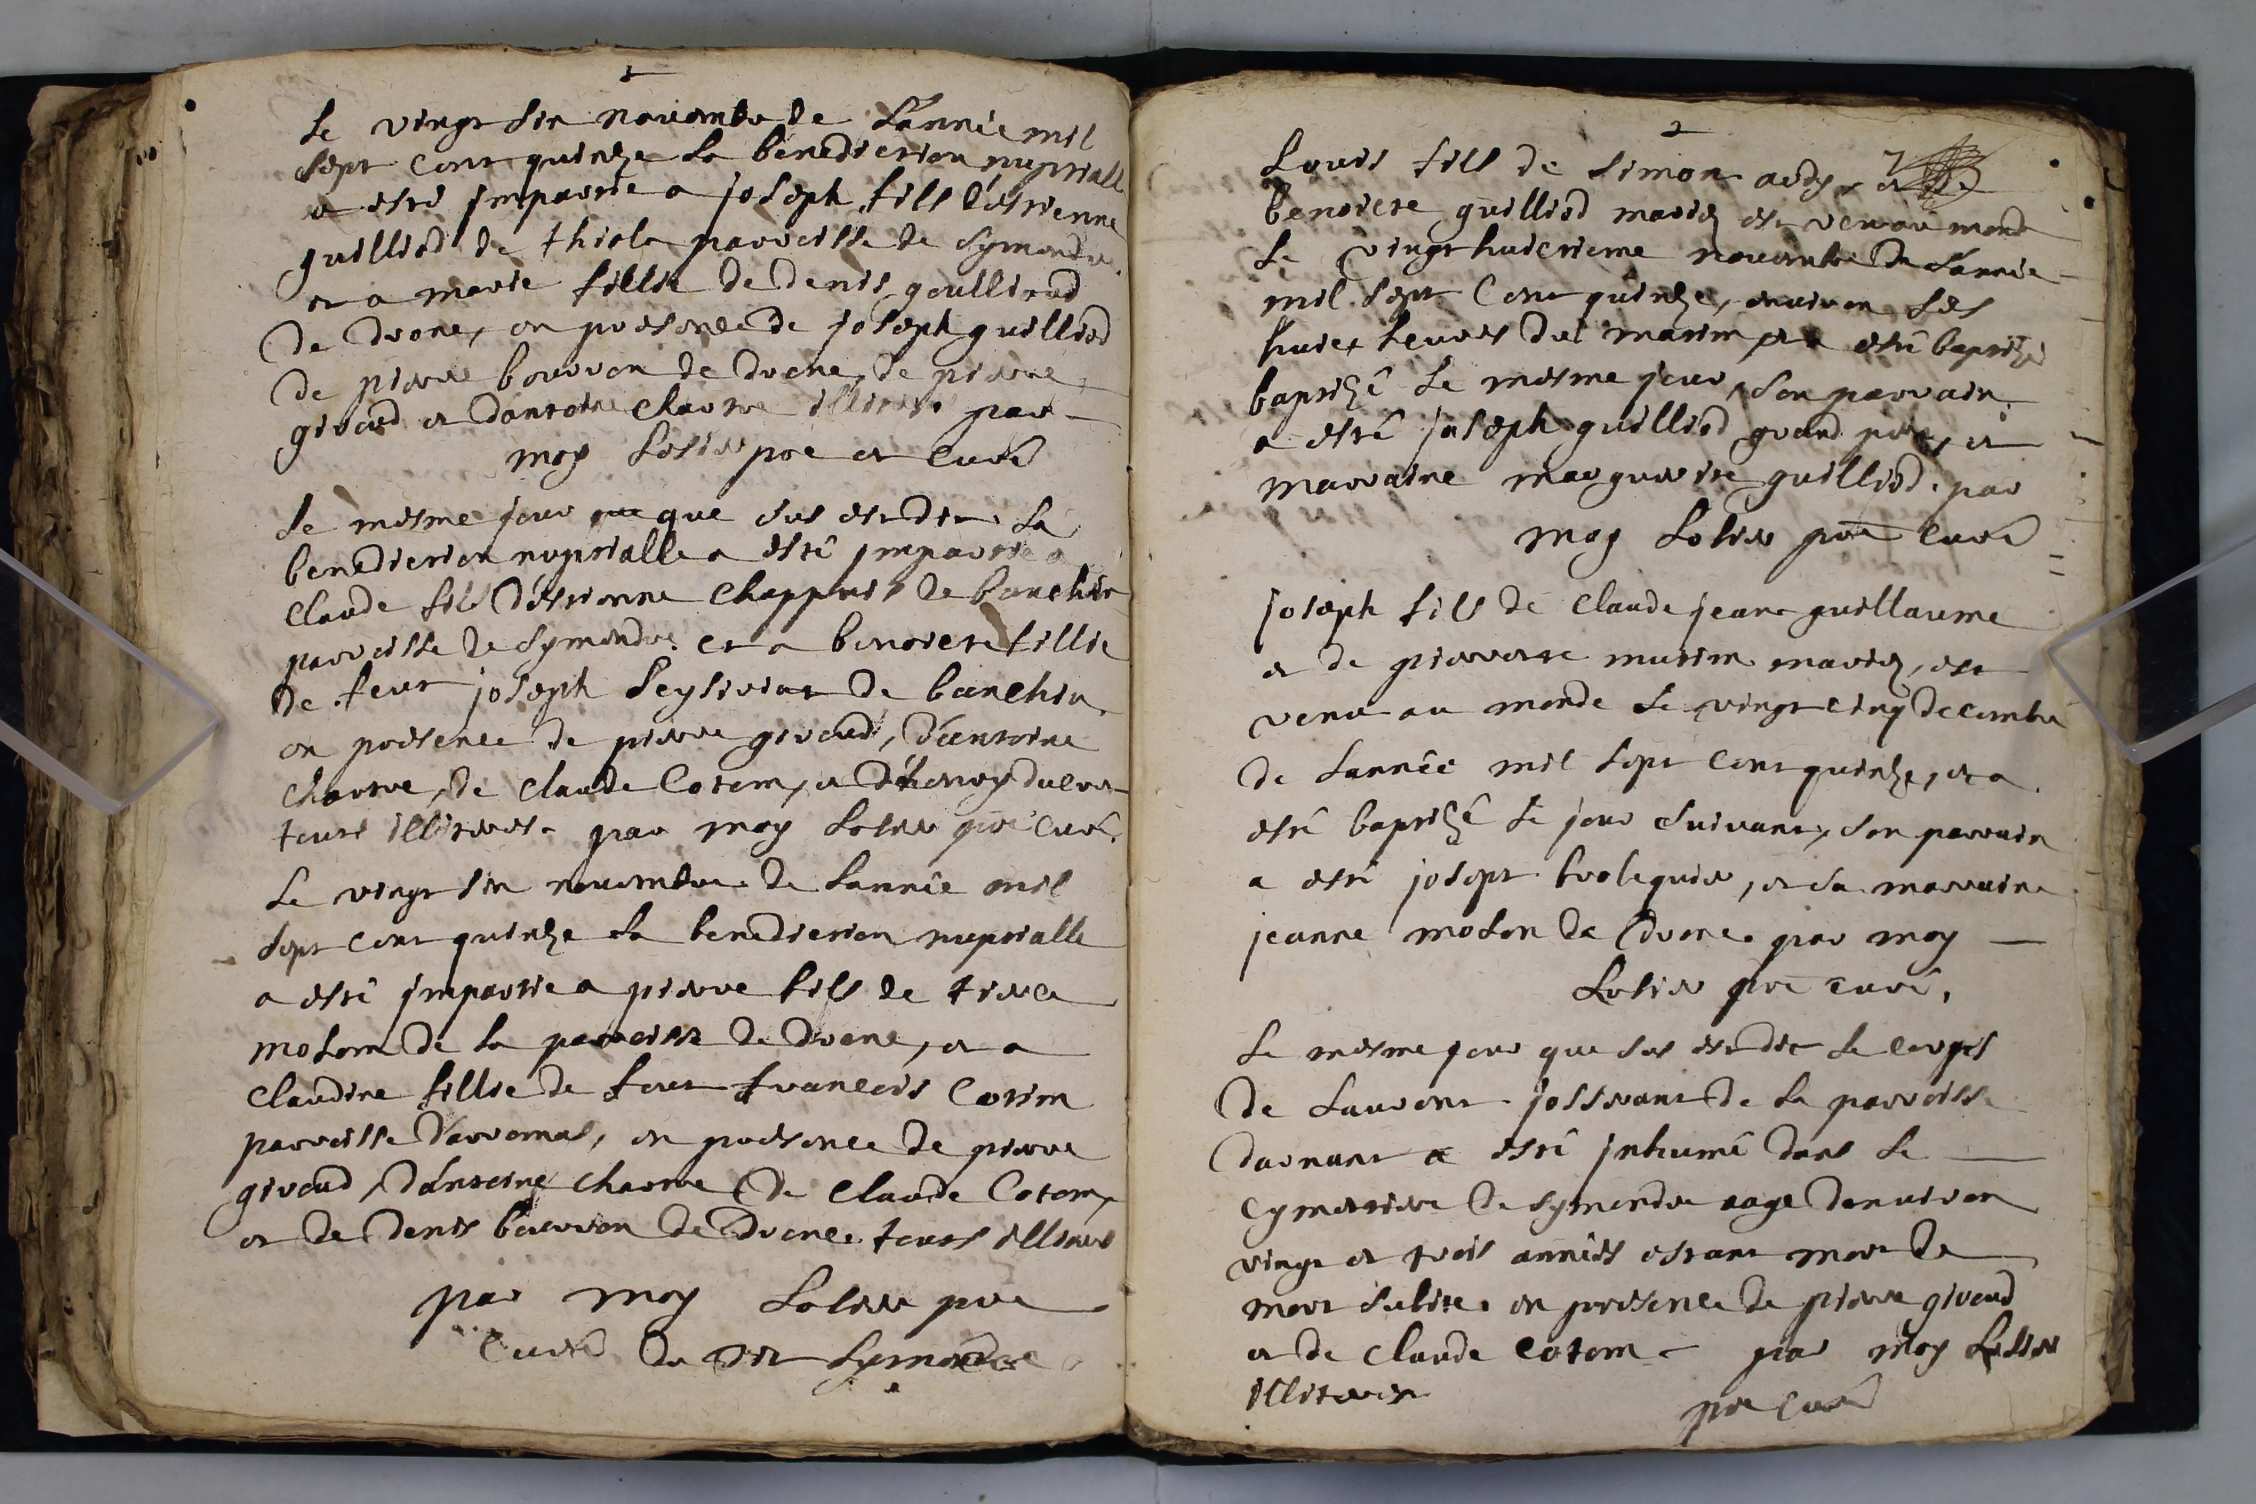 Le vingt six novembre de l'année mil
sept cent quinze la benediction nuptialle
a esté impartie a joseph fils d'estienne
guilliod de thiole parroisse de symandre
et a marie fillie de denis goullioud
de drone, en presence de joseph guilliod
de pierre bourron de drone, de pierre
giroud et dantoine charne illiteres par
moy Lolier pre et curé
Le mesme jour que sus est dit la
benediction nuptialle a esté impartie a
claude fils d'estienne chappuis de banchin
parroisse de symandre et a benoicte fillie
de feut joseph de banchin
en presence de pierre giroud, d'antoine
charne, de claude Cotem, et
touts illiteres par moy Lolier pre curé.
Le vingt six novembre de l'année mil
sept cent quinze la benediction nuptialle
a esté impartie a pierre fils de
molom de la parroisse de drone, et a
claudine fillie de feut francois Cotem
parroisse d'arromas, en presence de pierre
giroud, d'antoine charne de claude Cotem,
et de denis bourron de drone touts illiteres
par moy Lolier pre
curé du dit Symandre
2
Louis fils de simon et de
benoicte guilliod mariez est venu au monde
le vingt huictieme novembre de l'année
mil sept cent quinze, environ les
huict heures du matin et a esté baptizé
baptizé le mesme jour, son parrain
a esté joseph guilliod grand pere, et
marraine marguerite guilliod. par
moy Lolier pre curé
joseph fils de claude jean guillaume
et de pierrette mutin mariez, est
venu au monde le vingt cinq decembre
de l'année mil sept cent quinze, et a
esté baptizé le jour suivant, son parrain
a esté josept brolequier, et sa marraine
jeanne molon de drone. par moy
Lolier pre curé,
Le mesme jour que sus est dit le corps
de Laurent josserant de la parroisse
darnant a esté inhumé dans le
cymettiere de symandre aagé denviron
vingt et trois années estant mort de
mort subite. en presence de pierre giroud
et de claude cotem par moy Lolier
illiteres
pre curé